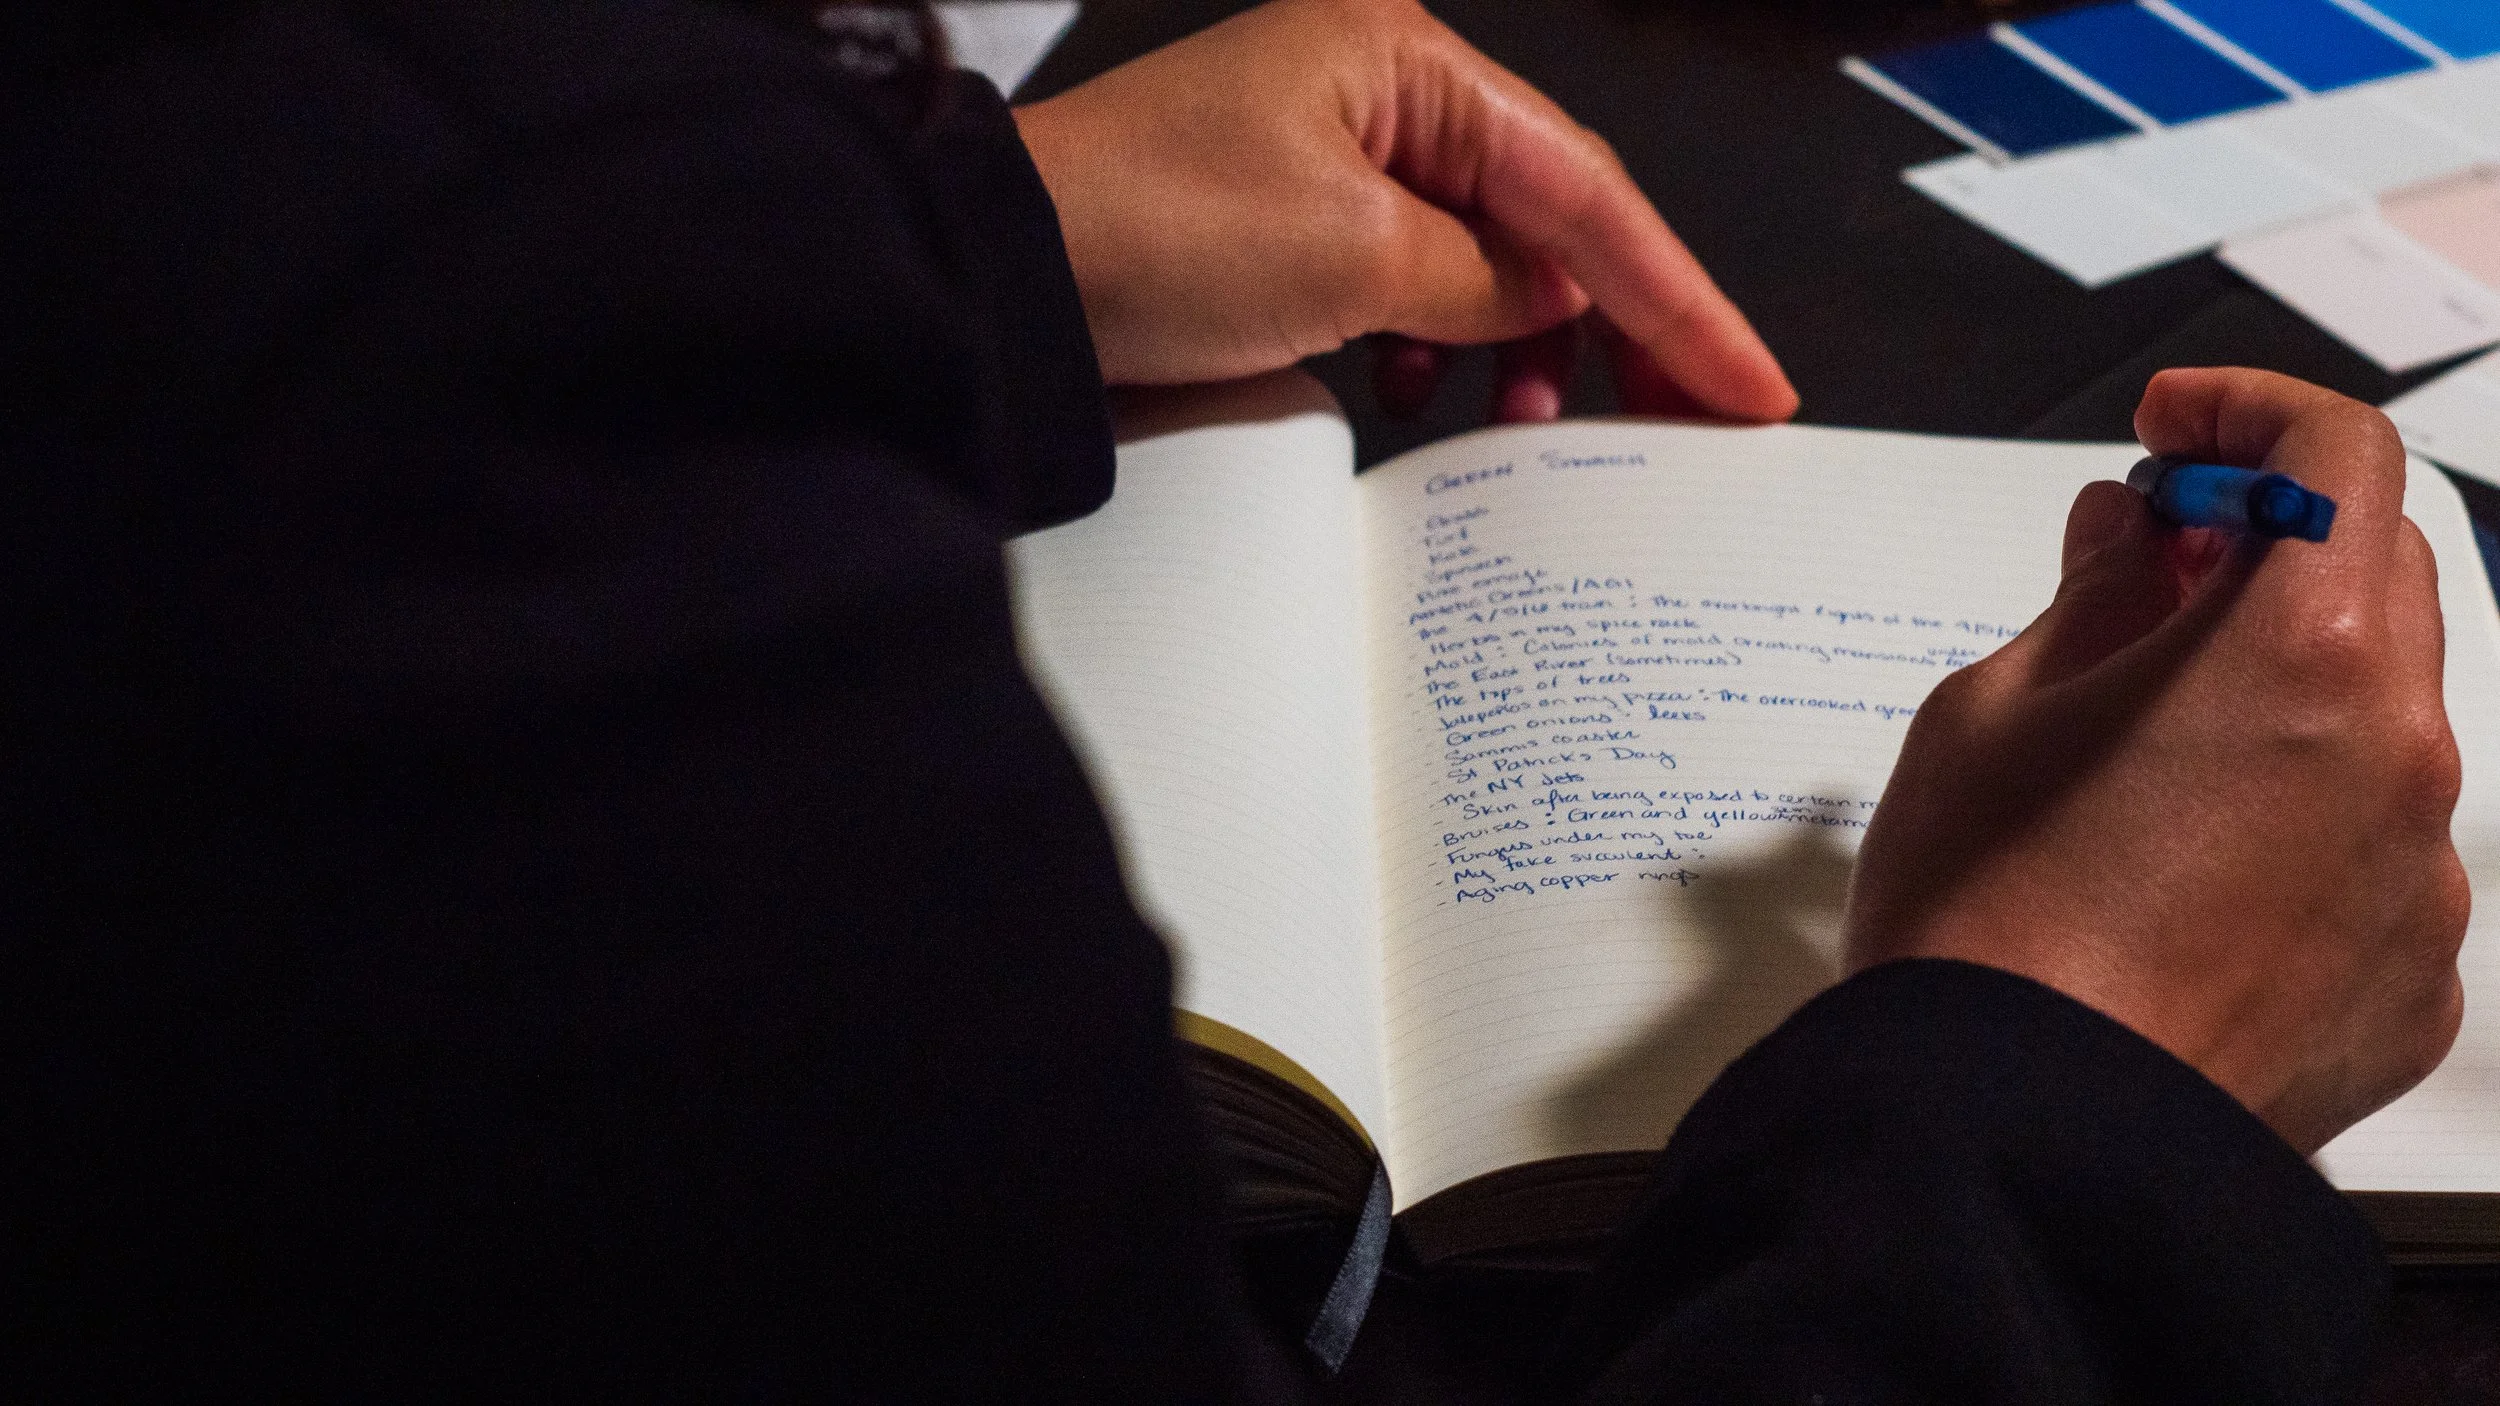 GREEN SWATCH
- Grass
- Turf
- Kale
- Spinach
- Puke emoji
- Athletic Greens/AG1
- The 4/5/6 train : The overbright lights of the 4/5/6
- Herbs in my spice rack
- Mold : Colonies of mold creating mansions under
- The East River (sometimes)
- The tops of trees
- Jalepeños on my pizza : The overcooked gree
- Green onions : leeks
- Sammis coaster
- St Patricks Day
- The NY Jets
- Skin after being exposed to certain m
- Bruises : Green and yellow metam
- Fungus under my toe
- My fake succulent :
- Aging copper rings